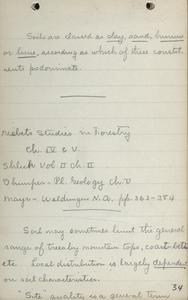 Soils are classed as clay, sand, humus
or lime, according as which of these constit-
uents predominate.
Studies in Forestry
Ch. IV & V.
Schlich Vol II Ch. II
Schimper - Pl. Geology Ch. V
Mayr - Waldungen N.A. pp. 363-384
Soil may sometimes limit the general
range of trees by mountain tops, coast-belts
etc. Local distribution is largely dependent
on soil characteristics.
"Site" quality is a general term
34